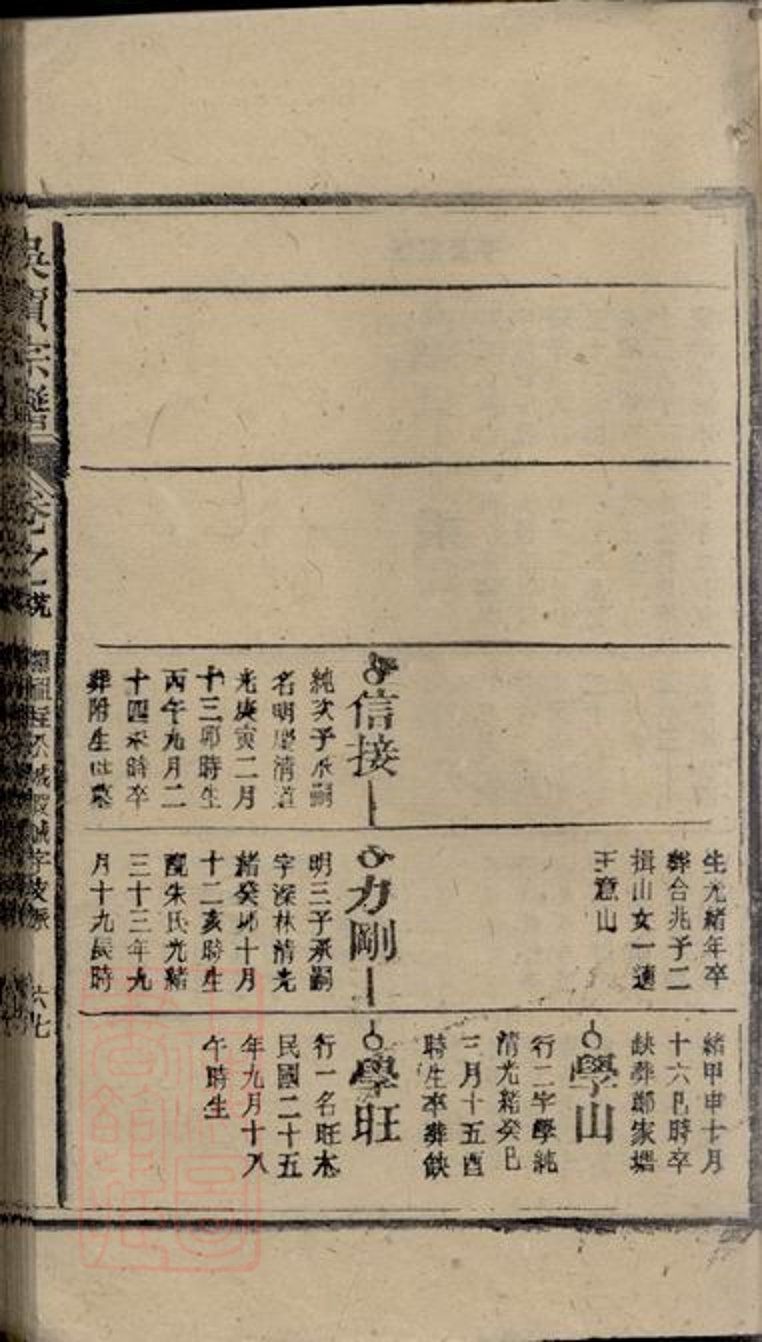 信接
純次子承嗣
名明慶清道
光庚寅二月
十三卯時生
丙午九月二
十四未時卒
葬附生山墓
生光緒年卒
葬合兆子二
揖山女一適
王意山
力剛
明三子承嗣
字深林清光
緒癸卯十月
十二亥時生
配朱氏光緒
三十三年九
月十九辰時
緒甲申十月
十六巳時卒
缺葬鄭家塘
學山
行二字學純
清光緒癸巳
三月十五酉
時生卒葬缺
學旺
行一名旺木
民國二十五
年九月十八
午時生
宗譜
卷之
六七